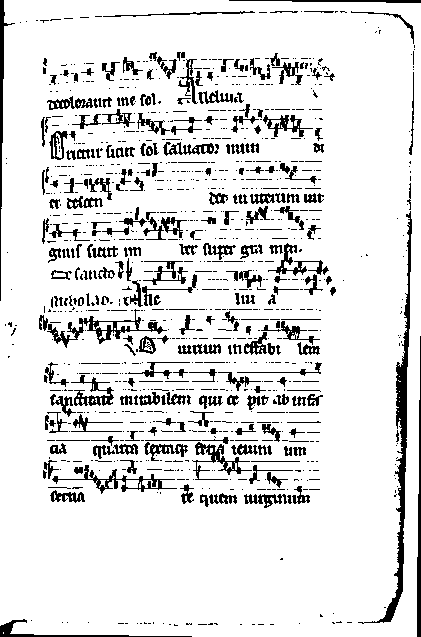 decoloravit me sol. Alleluia
Orietur sicut sol salvator mun di
et descen det in uterum vir
ginis sicut im ber super gra men.
De sancto
nicholao. Alle lui a
virum ineffabi lem
sanctitate mirabilem qui ce pit ab infan
cia quarta sextaque feria ieiuni um
serva re quem virginum